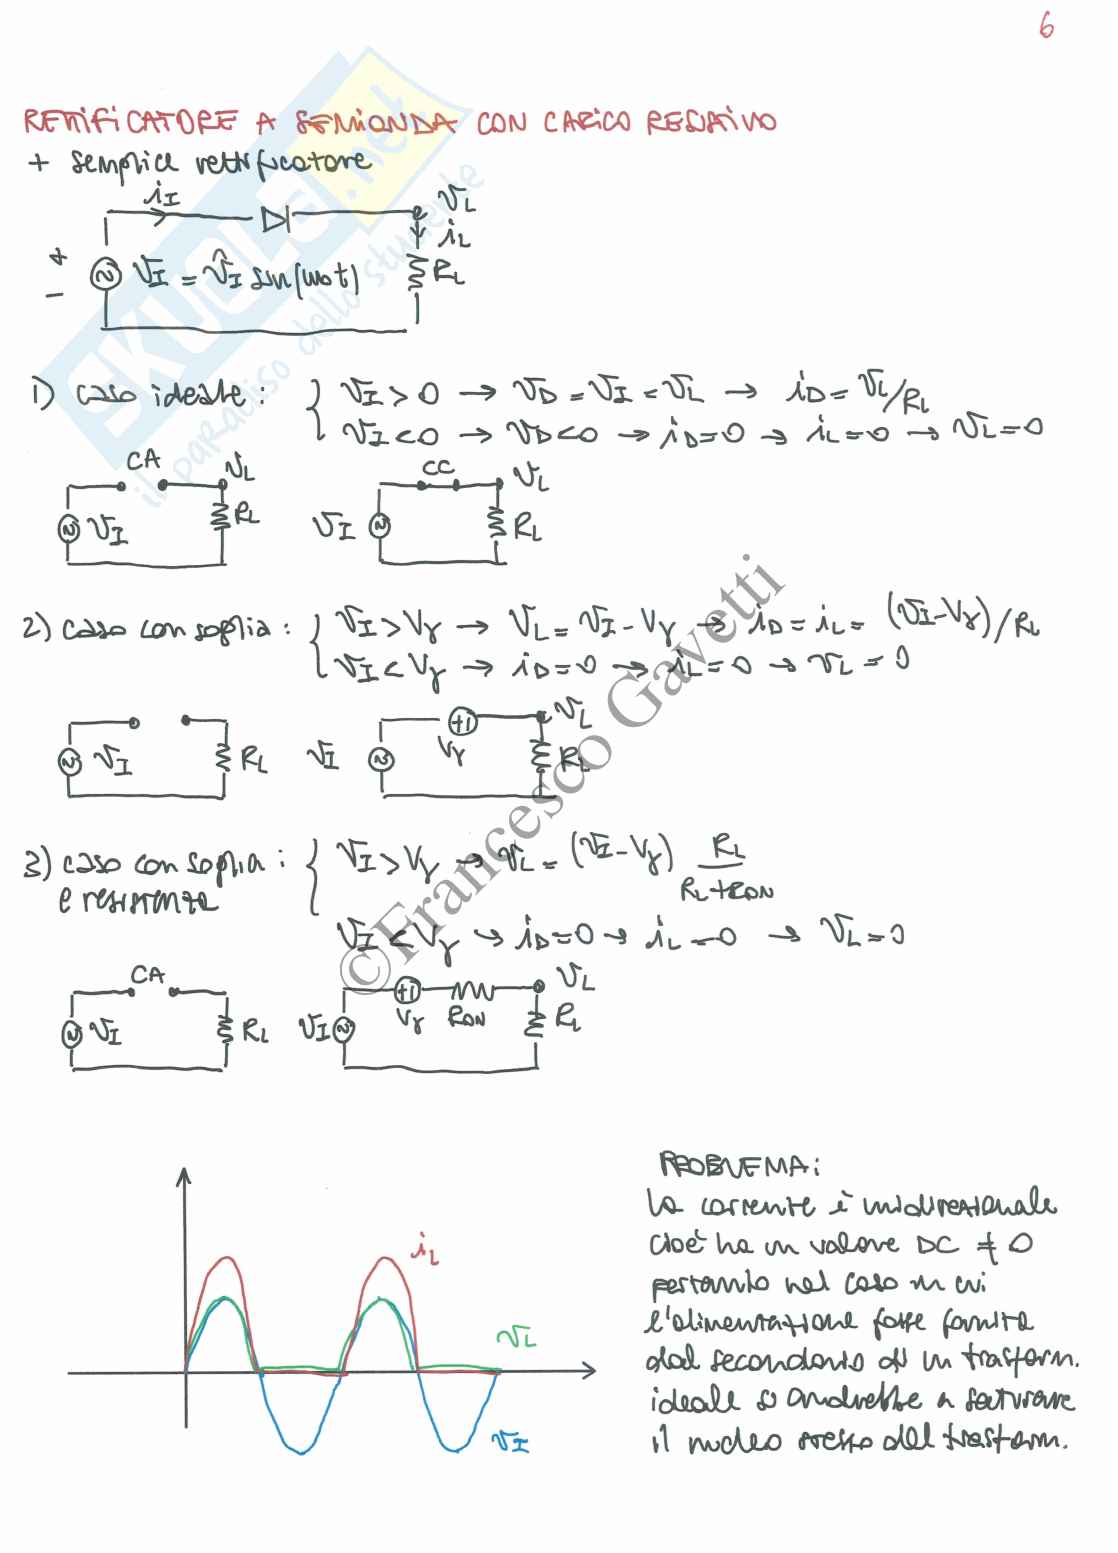 6
RETTIFICATORE A SEMIONDA CON CARICO RESISTIVO
+ semplice rettificatore
iI
VL
iL
+
-
VI = V̂I sin(ωot)
RL
1) caso ideale : { VI > 0 → VD = VI = VL → iD = VL/RL
VI < 0 → VD < 0 → iD = 0 → iL = 0 → VL = 0
CA VL
VI RL
CC VL
VI RL
2) caso con soglia : { VI > Vγ → VL = VI - Vγ → iD = iL = (VI - Vγ)/RL
VI < Vγ → iD = 0 → iL = 0 → VL = 0
VI RL
VI + Vγ VL RL
3) caso con soglia : { VI > Vγ → VL = (VI - Vγ) RL / RL + RON
e resistenza
VI < Vγ → iD = 0 → iL = 0 → VL = 0
CA
VI RL
VI + Vγ RON VL RL
iL
VL
VI
PROBLEMA:
la corrente è unidirezionale
cioè ha un valore DC ≠ 0
pertanto nel caso in cui
l'alimentazione fosse fornita
dal secondario di un trasform.
ideale si andrebbe a saturare
il nucleo stesso del trasform.
SKUOLA.net
il paradiso dello studente
©Francesco Gavetti